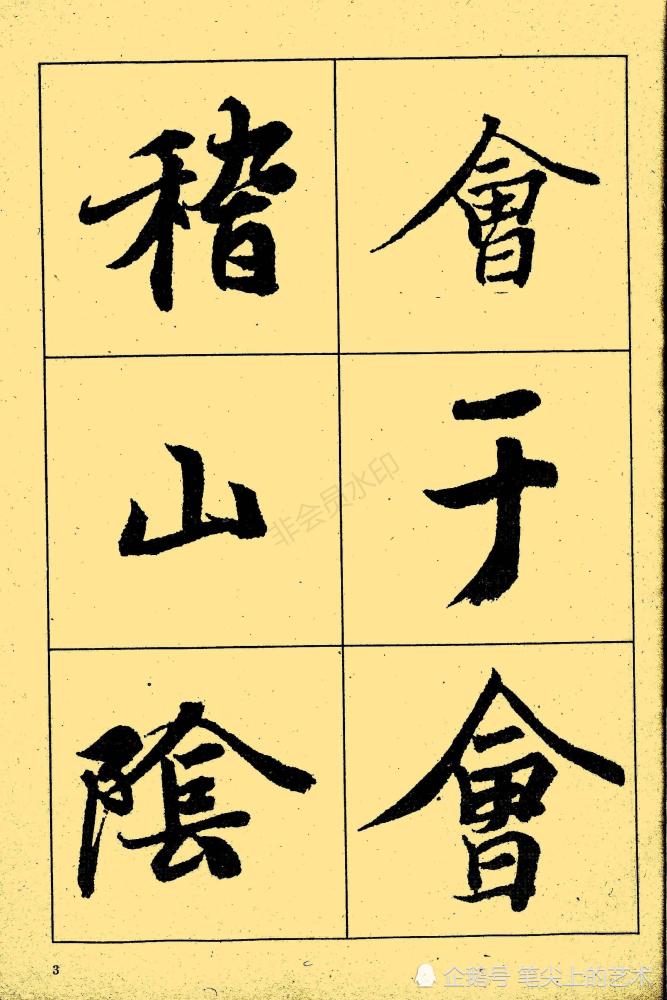 會于會
稽山陰
非会员水印
3
企鹅号 笔尖上的艺术